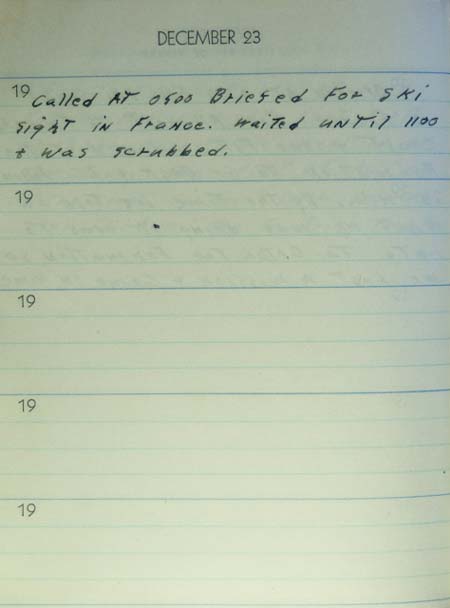 DECEMBER 23
19 Called AT 0500 Briefed For SKi
sight in France. Waited UNTil 1100
+ was scrubbed.
19
19
19
19